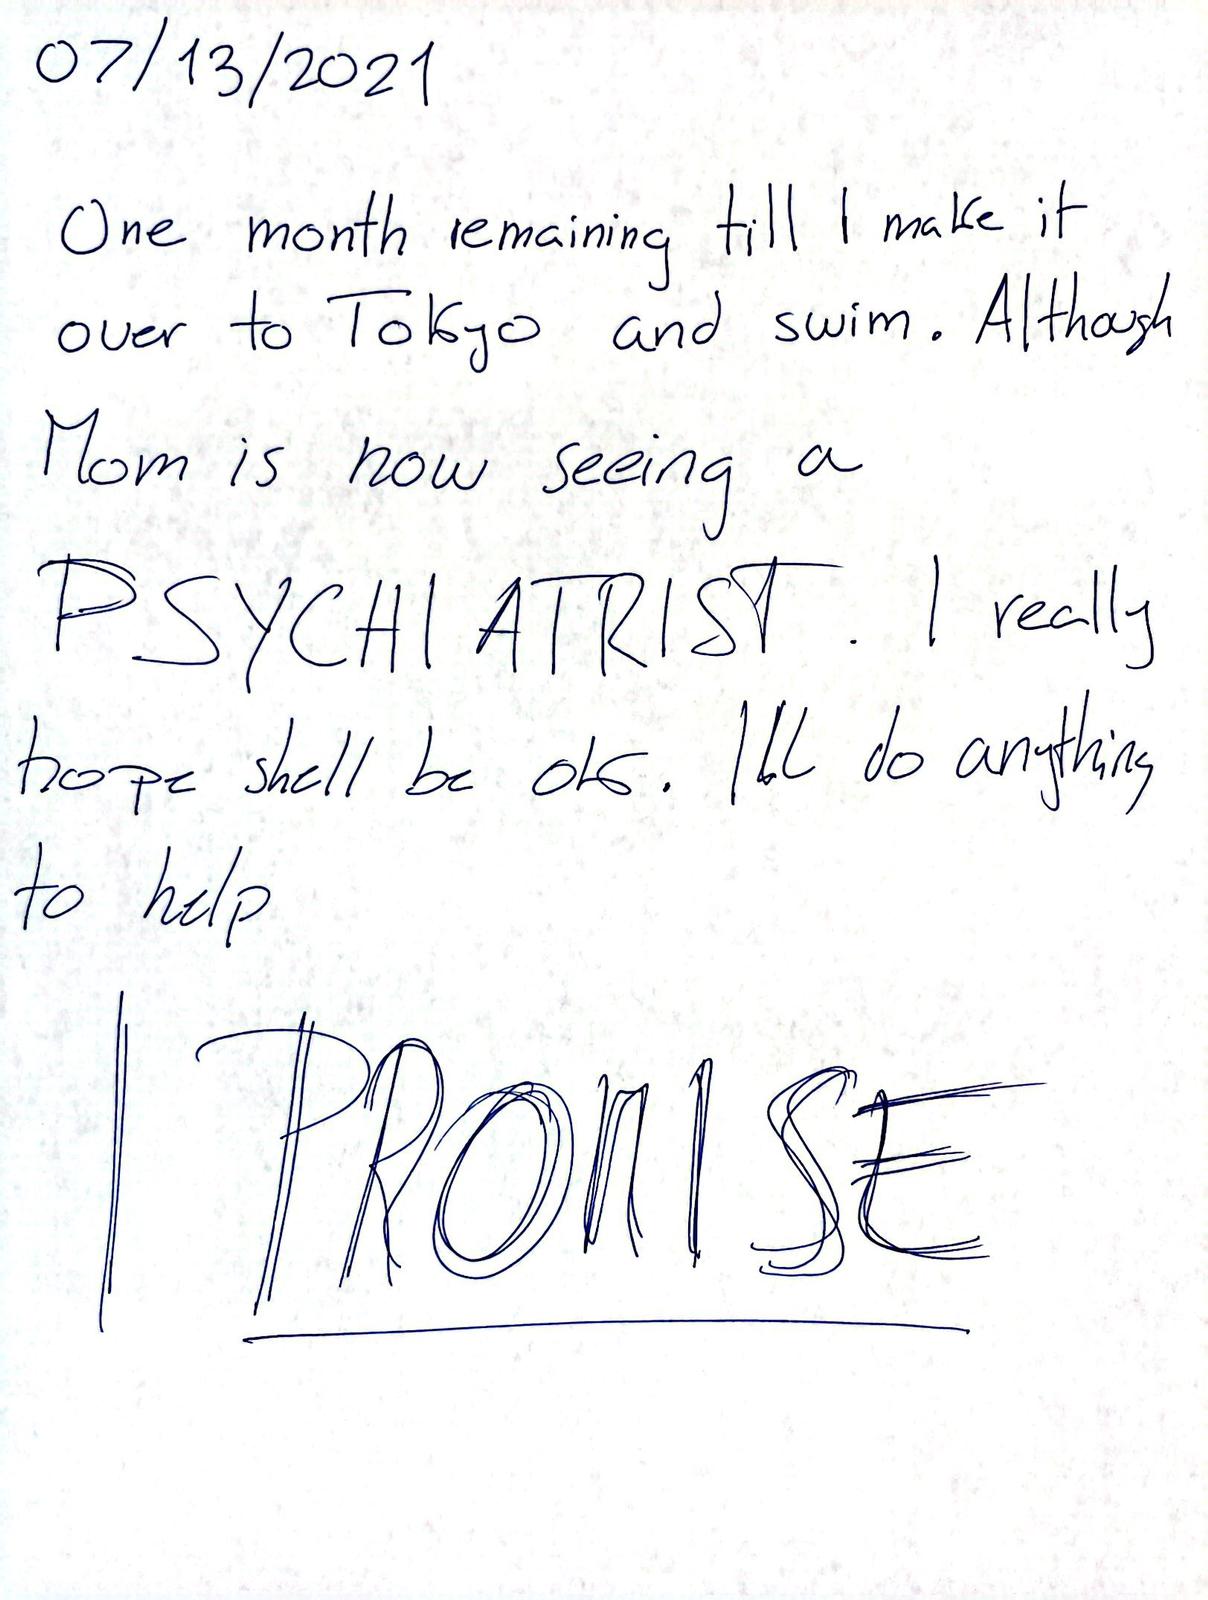 07/13/2021
One month remaining till I make it
over to Tokyo and swim. Although
Mom is now seeing a
PSYCHIATRIST. I really
hope shell be ok. Ill do anything
to help
I PROMISE